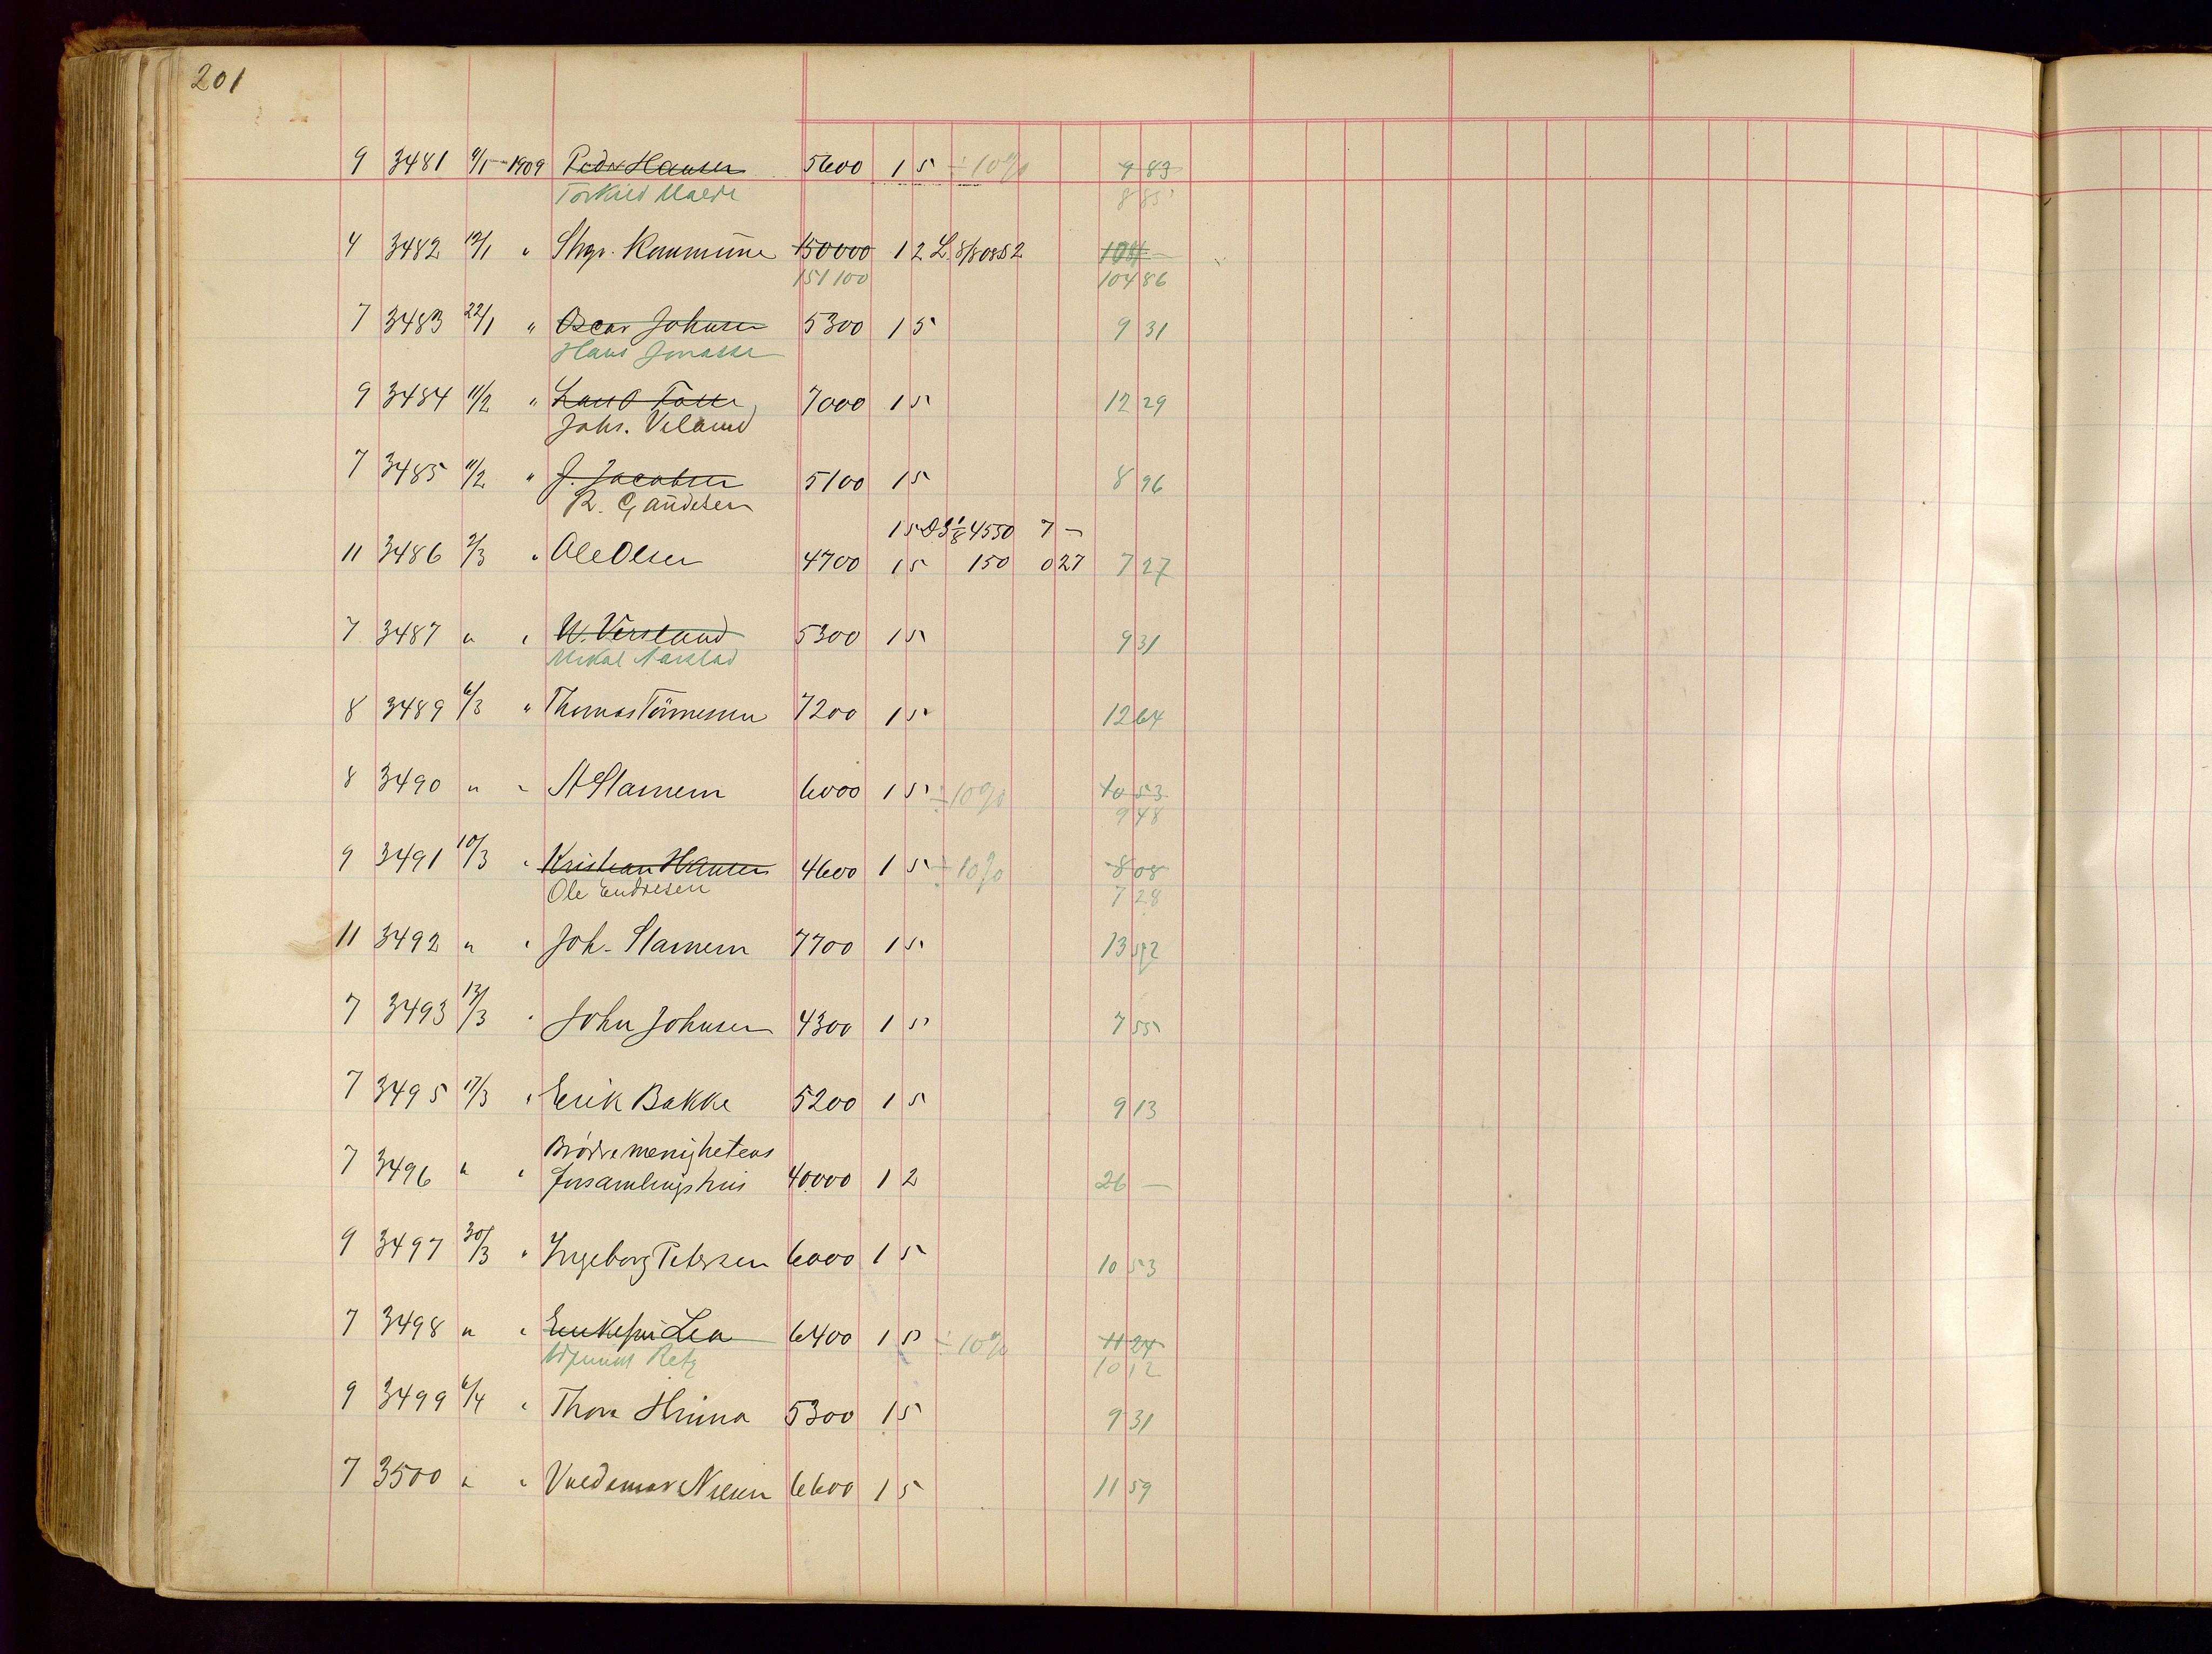 201
9 3481 9/1 1909 Peder Hansen 5600 1 5 ÷ 10% 9 83
Torkild Malde 8 85
4 3482 12/1 " Stvgr. Kommune 150000 1 2 L. 8/8 08 S2 104 —
151100 104 86
7 3483 22/1 " Oscar Johnsen 5300 1 5 9 31
Hans Jonassen
9 3484 11/2 " 7000 1 5 12 29
Johs. Veland
7 3485 11/2 " J. Jacobsen 5100 1 5 8 96
R. Gaudesen
1 5 4550 7 —
11 3486 2/3 " Ole Olsen 4700 1 5 150 027 7 27
7 3487 " " W. Versland 5300 1 5 9 31
Mikal
8 3489 6/3 " Thomas Tönnessen 7200 1 5 12 64
8 3490 " " A Stamnem 6000 1 5 ÷ 10% 10 53
9 48
9 3491 10/3 " Kristian Hansen 4600 1 5 ÷ 10% 8 08
Ole Endresen 7 28
11 3492 " " Joh. Stamnem 7700 1 5 13 52
7 3493 13/3 " John Johnsen 4300 1 5 7 55
7 3495 17/3 " Erik Bakke 5200 1 5 9 13
Brödremenighetens
7 3496 " " Forsamlingshus 40000 1 2 26 —
9 3497 30/3 " Ingeborg Petersen 6000 1 5 10 53
7 3498 " " Enkefru Lea 6400 1 5 ÷ 10% 11 24
Adjunkt Retz 10 12
9 3499 6/4 " Thore Hinna 5300 1 5 9 31
7 3500 " " Valdemar Nilsen 6600 1 5 11 59